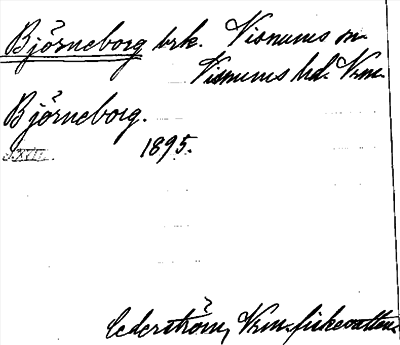 Björneborg brk. Visnums sn.
Visnums hd. Vrm.
Björneborg.
1895.
Cederström, Vrm. fiskevatten